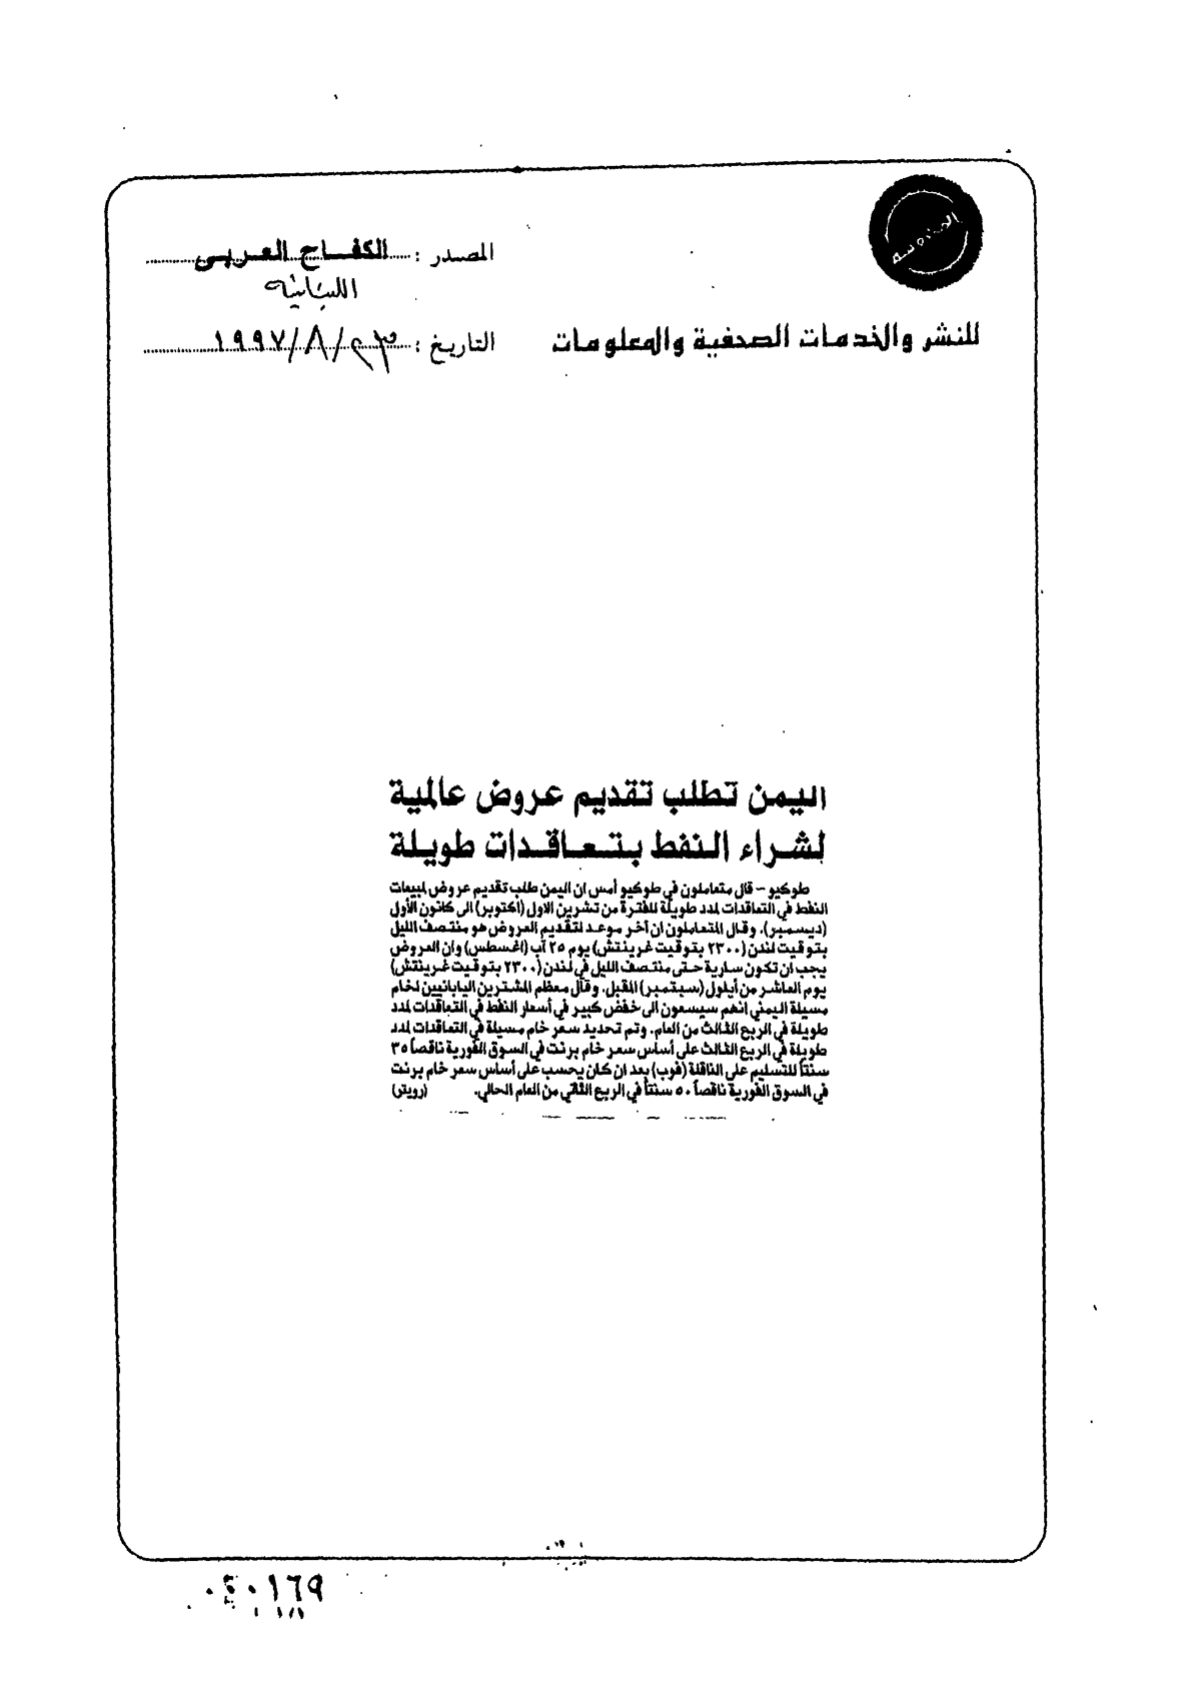 المصدر : الكفاح العربي
اللبنانية
للنشر والخدمات الصحفية والمعلومات
التاريخ : ٢٣/٨/١٩٩٧
اليمن تطلب تقديم عروض عالمية
لشراء النفط بتعاقدات طويلة
طوكيو – قال متعاملون في طوكيو أمس ان اليمن طلب تقديم عروض لمبيعات
النفط في التعاقدات لمدد طويلة للفترة من تشرين الاول (اكتوبر) الى كانون الأول
(ديسمبر). وقال المتعاملون ان آخر موعد لتقديم العروض هو منتصف الليل
بتوقيت لندن (٢٣٠٠ بتوقيت غرينتش) يوم ٢٥ آب (اغسطس) وان العروض
يجب ان تكون سارية حتى منتصف الليل في لندن (٢٣٠٠ بتوقيت غرينتش)
يوم العاشر من أيلول (سبتمبر) المقبل. وقال معظم المشترين اليابانيين لخام
مسيلة اليمني انهم سيسعون الى خفض كبير في أسعار النفط في التعاقدات لمدد
طويلة في الربع الثالث من العام. وتم تحديد سعر خام مسيلة في التعاقدات لمدد
طويلة في الربع الثالث على أساس سعر خام برنت في السوق الفورية ناقصاً ٣٥
سنتاً للتسليم على الناقلة (فوب) بعد ان كان يحسب على أساس سعر خام برنت
في السوق الفورية ناقصاً ٥٠ سنتاً في الربع الثاني من العام الحالي. (رويتر)